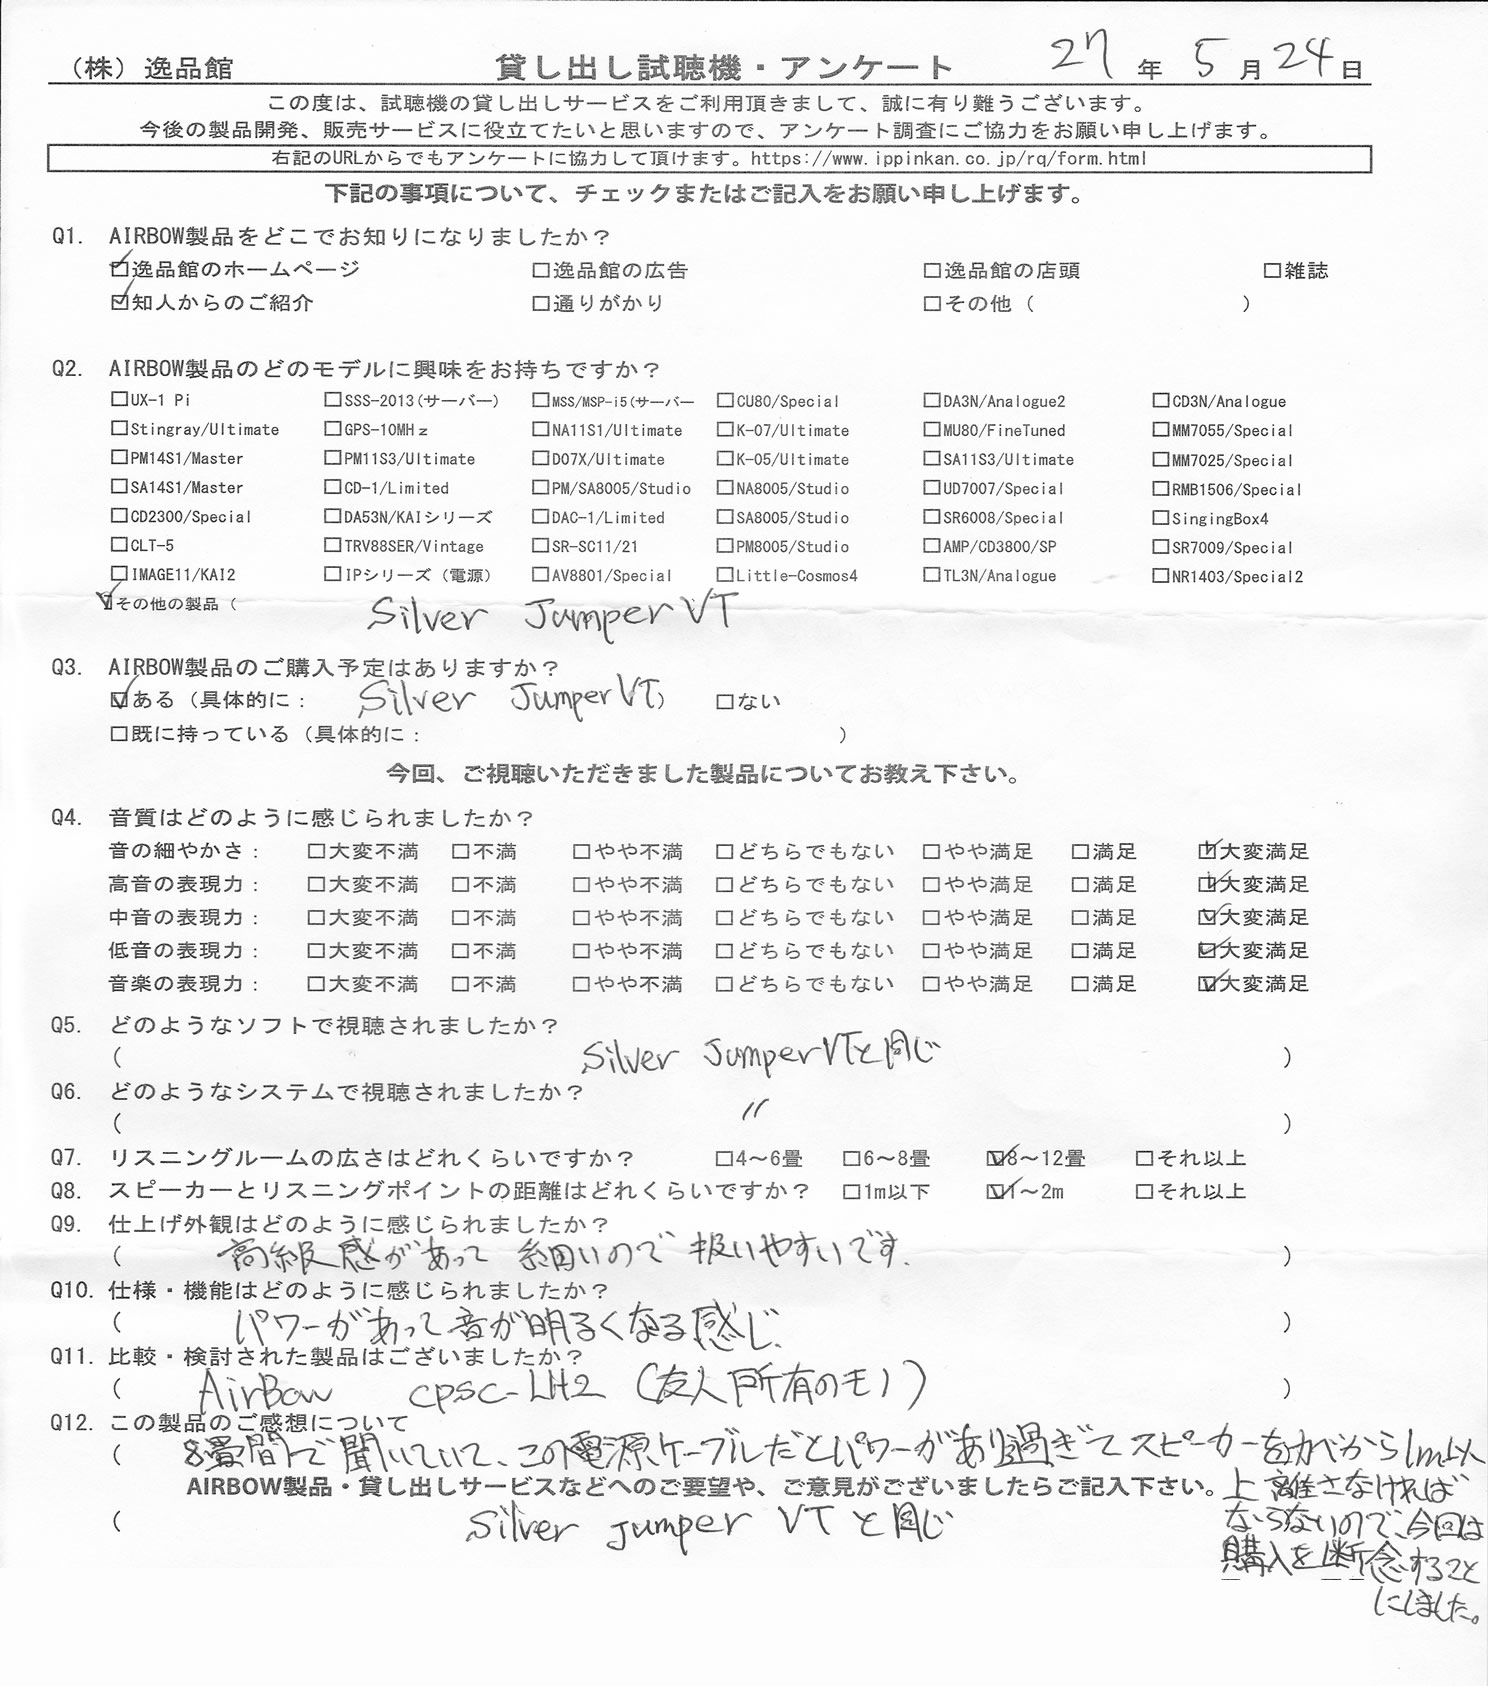 （株）逸品館 貸し出し試聴機・アンケート 27年 5月 24日
この度は、試聴機の貸し出しサービスをご利用頂きまして、誠に有り難うございます。
今後の製品開発、販売サービスに役立てたいと思いますので、アンケート調査にご協力をお願い申し上げます。
右記のURLからでもアンケートに協力して頂けます。https://www.ippinkan.co.jp/rq/form.html
下記の事項について、チェックまたはご記入をお願い申し上げます。
Q1. AIRBOW製品をどこでお知りになりましたか？
☑逸品館のホームページ □逸品館の広告 □逸品館の店頭 □雑誌
☑知人からのご紹介 □通りがかり □その他（ ）
Q2. AIRBOW製品のどのモデルに興味をお持ちですか？
□UX-1 Pi □SSS-2013(サーバー) □MSS/MSP-i5(サーバー □CU80/Special □DA3N/Analogue2 □CD3N/Analogue
□Stingray/Ultimate □GPS-10MHｚ □NA11S1/Ultimate □K-07/Ultimate □MU80/FineTuned □MM7055/Special
□PM14S1/Master □PM11S3/Ultimate □D07X/Ultimate □K-05/Ultimate □SA11S3/Ultimate □MM7025/Special
□SA14S1/Master □CD-1/Limited □PM/SA8005/Studio □NA8005/Studio □UD7007/Special □RMB1506/Special
□CD2300/Special □DA53N/KAIシリーズ □DAC-1/Limited □SA8005/Studio □SR6008/Special □SingingBox4
□CLT-5 □TRV88SER/Vintage □SR-SC11/21 □PM8005/Studio □AMP/CD3800/SP □SR7009/Special
□IMAGE11/KAI2 □IPシリーズ（電源） □AV8801/Special □Little-Cosmos4 □TL3N/Analogue □NR1403/Special2
☑その他の製品（ Silver Jumper VT
Q3. AIRBOW製品のご購入予定はありますか？
☑ある（具体的に： Silver Jumper VT） □ない
□既に持っている（具体的に： ）
今回、ご視聴いただきました製品についてお教え下さい。
Q4. 音質はどのように感じられましたか？
音の細やかさ： □大変不満 □不満 □やや不満 □どちらでもない □やや満足 □満足 ☑大変満足
高音の表現力： □大変不満 □不満 □やや不満 □どちらでもない □やや満足 □満足 ☑大変満足
中音の表現力： □大変不満 □不満 □やや不満 □どちらでもない □やや満足 □満足 ☑大変満足
低音の表現力： □大変不満 □不満 □やや不満 □どちらでもない □やや満足 □満足 ☑大変満足
音楽の表現力： □大変不満 □不満 □やや不満 □どちらでもない □やや満足 □満足 ☑大変満足
Q5. どのようなソフトで視聴されましたか？
（ Silver Jumper VTと同じ ）
Q6. どのようなシステムで視聴されましたか？
（ 〃 ）
Q7. リスニングルームの広さはどれくらいですか？ □4～6畳 □6～8畳 ☑8～12畳 □それ以上
Q8. スピーカーとリスニングポイントの距離はどれくらいですか？ □1m以下 ☑1～2m □それ以上
Q9. 仕上げ外観はどのように感じられましたか？
（ 高級感があって 細いので 扱いやすいです. ）
Q10. 仕様・機能はどのように感じられましたか？
（ パワーがあって音が明るくなる感じ、 ）
Q11. 比較・検討された製品はございましたか？
（ AirBow cpsc-LH2 (友人所有のモノ) ）
Q12. この製品のご感想について
（ 8畳間で聞いていて、この電源ケーブルだとパワーがあり過ぎてスピーカーをカベから1m以
上離さなければ
ならないので、今回は
購入を断念すること
にしました。
AIRBOW製品・貸し出しサービスなどへのご要望や、ご意見がございましたらご記入下さい。
（ Silver jumper VT と同じ